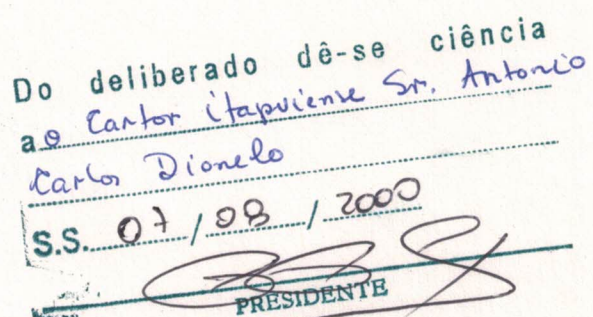 Do deliberado dê-se ciência
ao Cantor itapuiense Sr. Antonio
Carlos Dionelo
S.S. 07 / 08 / 2000
PRESIDENTE